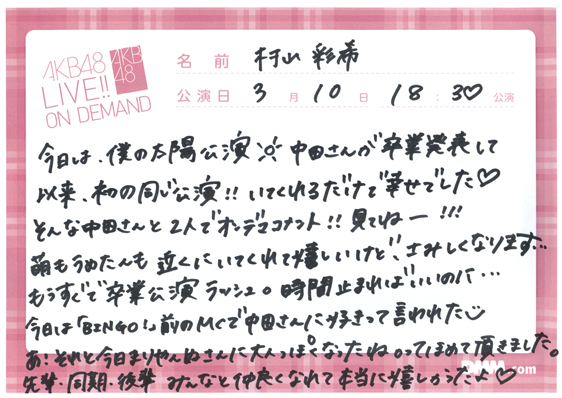 AKB48
LIVE!!
ON DEMAND
AKB
48
名前 村山 彩希
公演日 3月10日 18:30♡公演
今日は、僕の太陽公演☼中田さんが卒業発表して
以来、初の同じ公演!!いてくれるだけで幸せでした♡
そんな中田さんと2人でオンデマコメント!!見てねー!!!
萌もうめたんも近くにいてくれて嬉しいけど、さみしくなります…
もうすぐで卒業公演ラッシュ。時間止まればいいのに…
今日は「BINGO!」前のMCで中田さんに好きって言われた
あ!それと今日まりやんぬさんに大人っぽくなったねってほめて頂きました。
先輩・同期・後輩 みんなと仲良くなれて本当に嬉しかったよ♡
DMM.com